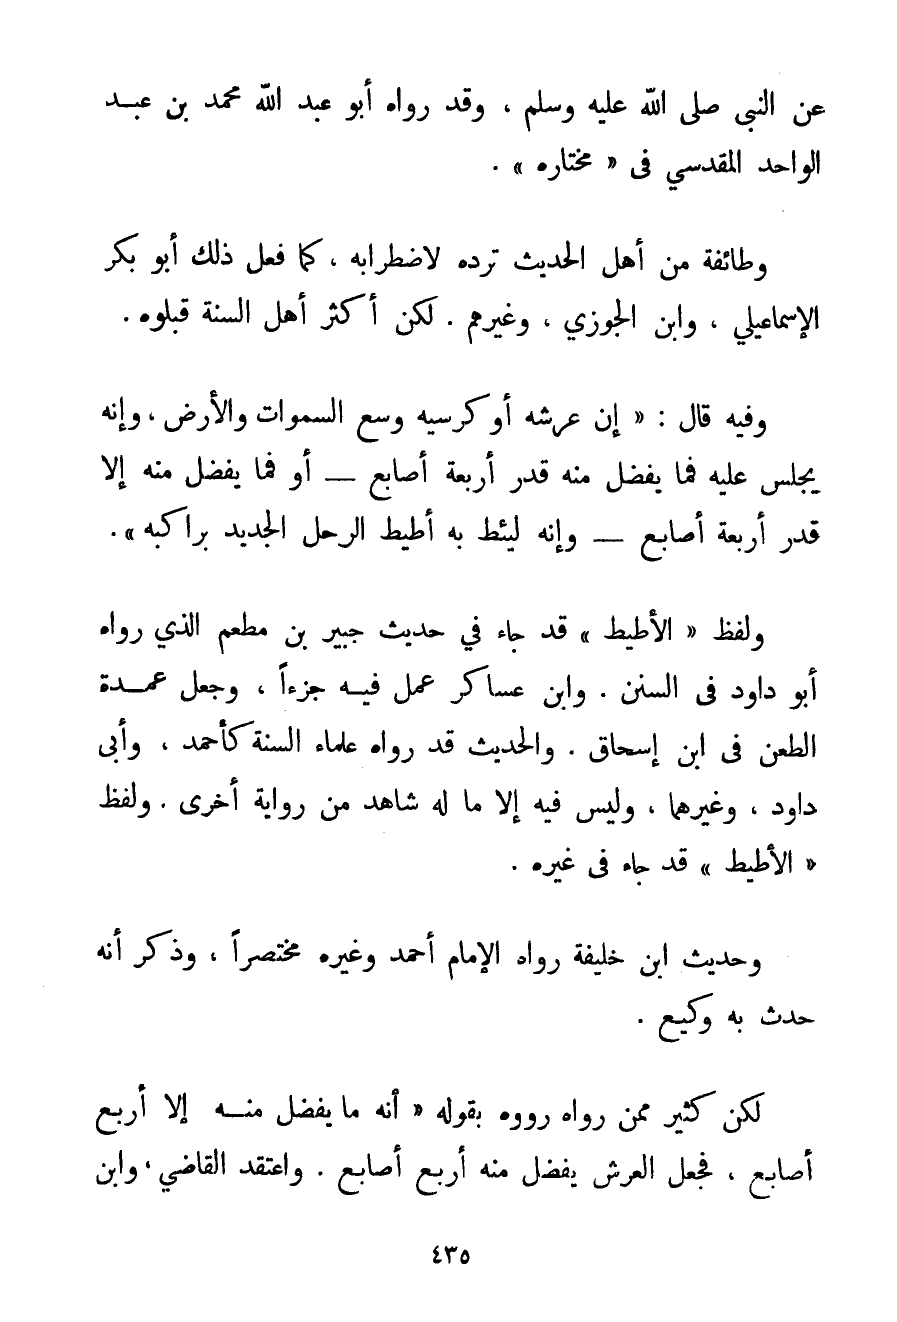 عن النبي صلى الله عليه وسلم ، وقد رواه أبو عبد الله محمد بن عبـد
الواحد المقدسي فى « مختاره » .
وطائفة من أهل الحديث ترده لاضطرابه ، كما فعل ذلك أبو بكر
الإسماعيلي ، وابن الجوزي ، وغيرهم . لكن أكثر أهل السنة قبلوه .
وفيه قال : « إن عرشه أو كرسيه وسع السموات والأرض ، وإنه
يجلس عليه فما يفضل منه قدر أربعة أصابع — أو فما يفضل منه إلا
قدر أربعة أصابع — وإنه ليئط به أطيط الرحل الجديد براكبه » .
ولفظ « الأطيط » قد جاء في حديث جبير بن مطعم الذي رواه
أبو داود فى السنن . وابن عساكر عمل فيـه جزءاً ، وجعل عمـدة
الطعن فى ابن إسحاق . والحديث قد رواه علماء السنة كأحمد ، وأبى
داود ، وغيرهما ، وليس فيه إلا ما له شاهد من رواية أخرى . ولفظ
« الأطيط » قد جاء فى غيره .
وحديث ابن خليفة رواه الإمام أحمد وغيره مختصراً ، وذكر أنه
حدث به وكيع .
لكن كثير ممن رواه رووه بقوله « أنه ما يفضل منـه إلا أربع
أصابع ، فجعل العرش يفضل منه أربع أصابع . واعتقد القاضي ، وابن
٤٣٥